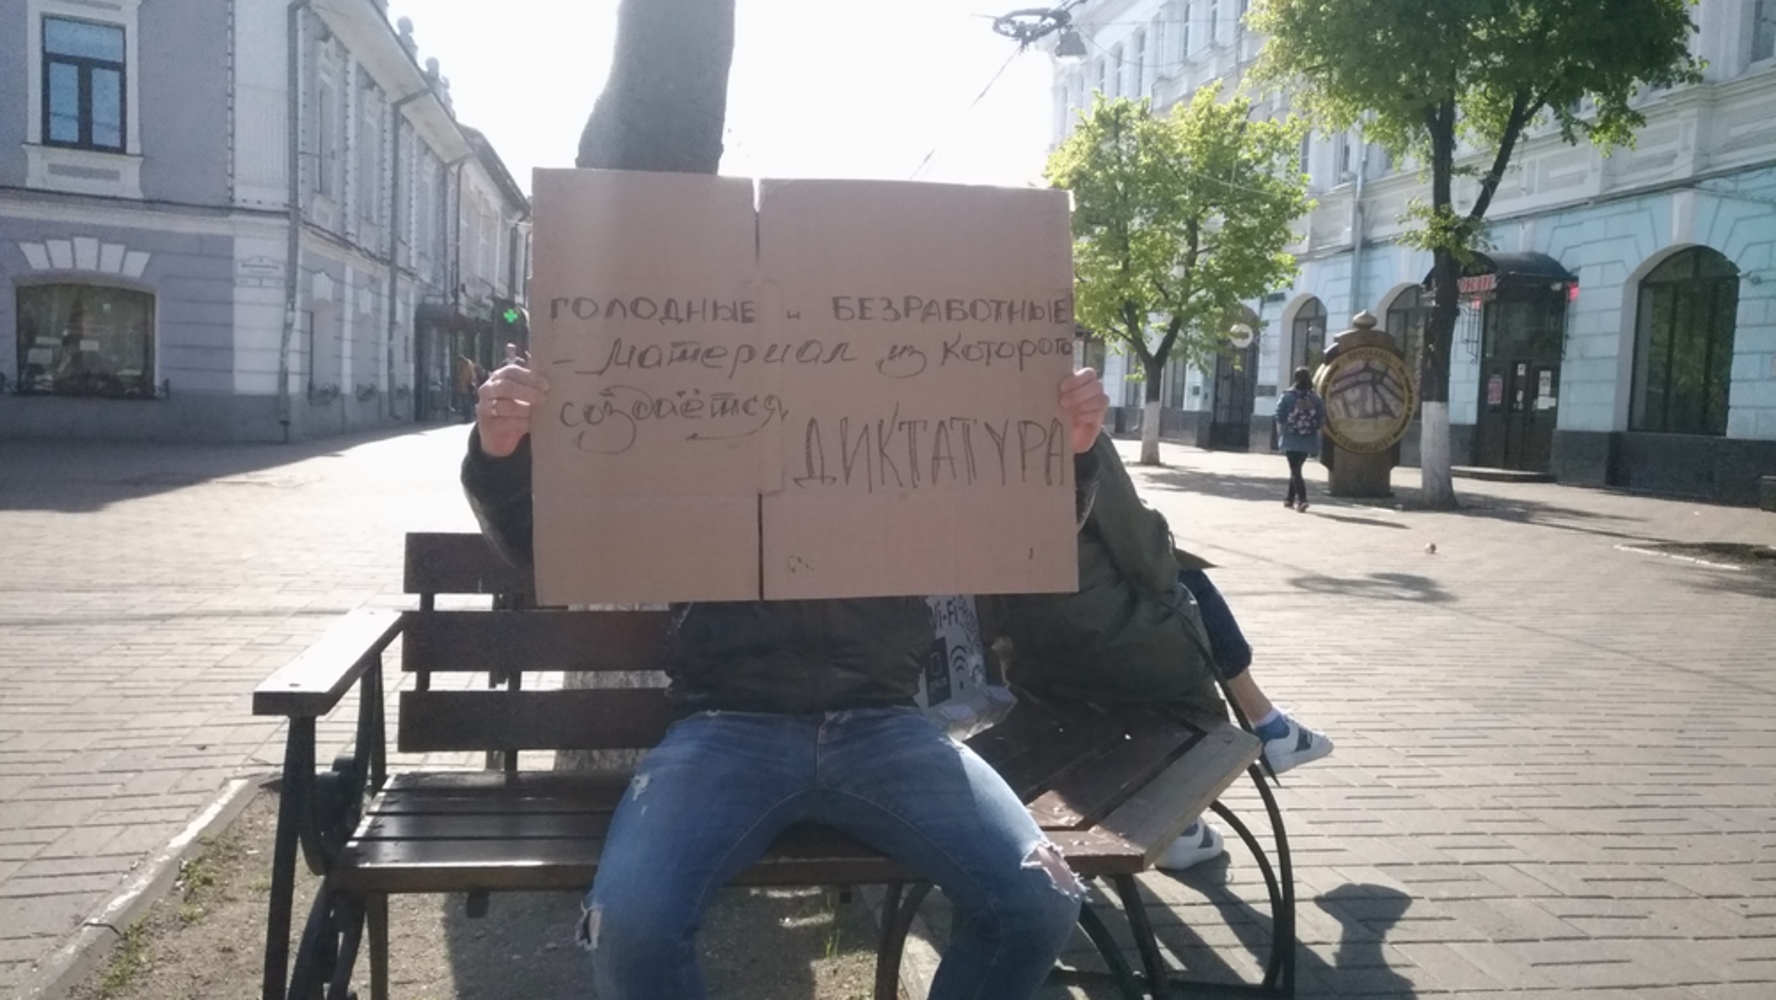 ГОЛОДНЫЕ и БЕЗРАБОТНЫЕ
– Материал из Которого
создаётся
ДИКТАТУРА
Wi-Fi